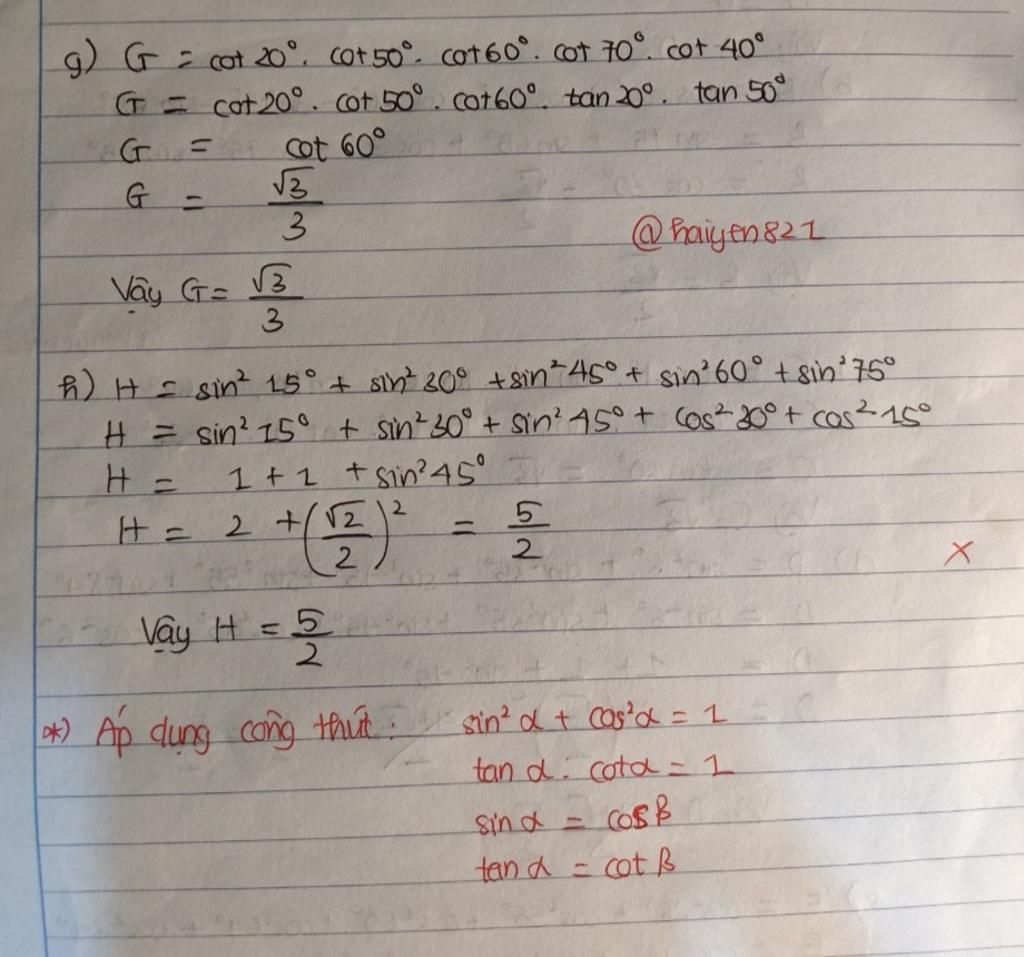 g) G = cot 20°. cot 50°. cot 60°. cot 70°. cot 40°
G = cot 20°. cot 50°. cot 60°. tan 20°. tan 50°
G = cot 60°
G = √3/3
@haiyen821
Vậy G = √3/3
h) H = sin² 15° + sin² 30° + sin² 45° + sin² 60° + sin² 75°
H = sin² 15° + sin² 30° + sin² 45° + cos² 30° + cos² 15°
H = 1 + 1 + sin² 45°
H = 2 + (√2/2)² = 5/2
x
Vậy H = 5/2
*) Áp dụng công thức: sin² α + cos² α = 1
tan α . cot α = 1
sin α = cos β
tan α = cot β